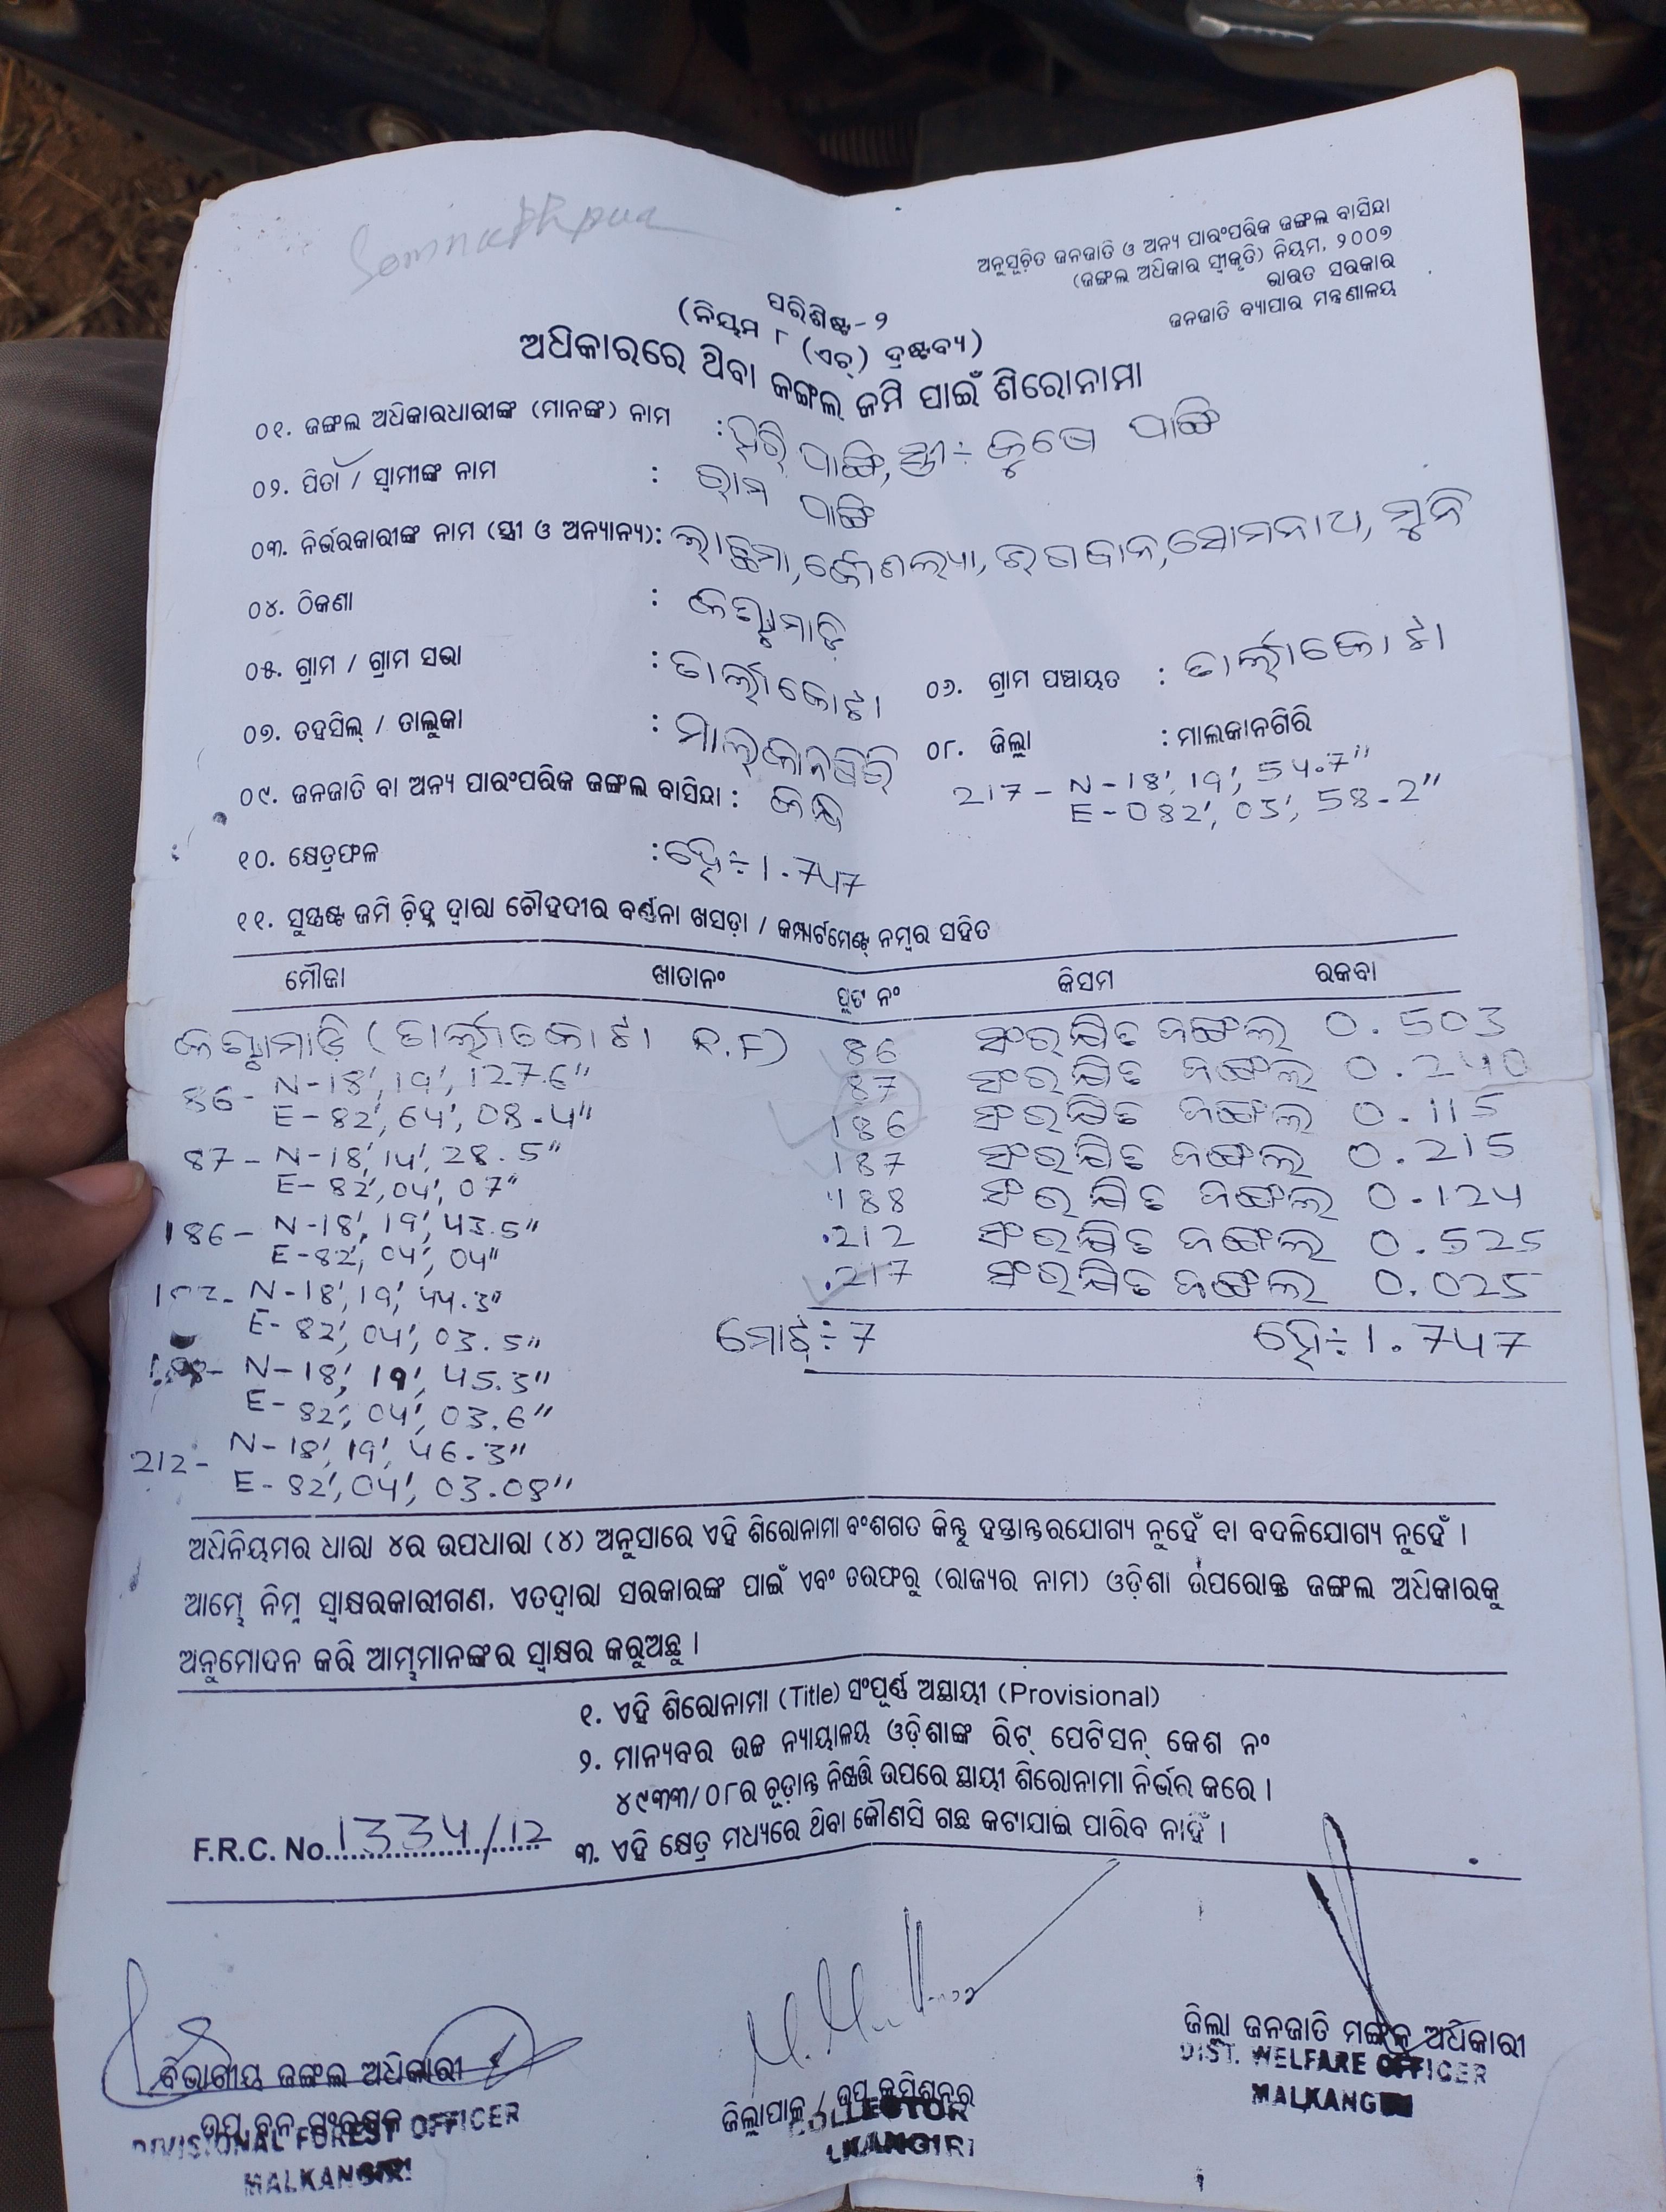 Somnathpur
ଅନୁସୂଚିତ ଜନଜାତି ଓ ଅନ୍ୟ ପାରଂପରିକ ଜଙ୍ଗଲ ବାସିନ୍ଦା
(ଜଙ୍ଗଲ ଅଧିକାର ସ୍ୱୀକୃତି) ନିୟମ, ୨୦୦୭
ଭାରତ ସରକାର
ଜନଜାତି ବ୍ୟାପାର ମନ୍ତ୍ରଣାଳୟ
ପରିଶିଷ୍ଟ-୨
(ନିୟମ ୮ (ଏଚ୍) ଦ୍ରଷ୍ଟବ୍ୟ)
ଅଧିକାରରେ ଥିବା ଜଙ୍ଗଲ ଜମି ପାଇଁ ଶିରୋନାମା
୦୧. ଜଙ୍ଗଲ ଅଧିକାରଧାରୀଙ୍କ (ମାନଙ୍କ) ନାମ : ହରି ପାଙ୍ଗି, ସ୍ତ୍ରୀ ÷ ପାଙ୍ଗି
୦୨. ପିତା / ସ୍ୱାମୀଙ୍କ ନାମ : ରାମ ପାଙ୍ଗି
୦୩. ନିର୍ଭରକାରୀଙ୍କ ନାମ (ସ୍ତ୍ରୀ ଓ ଅନ୍ୟାନ୍ୟ): ଲାଛମା, କୌଶଲ୍ୟା, ଭଗବାନ, ସୋମନାଥ, ମୁନି
୦୪. ଠିକଣା :
୦୫. ଗ୍ରାମ / ଗ୍ରାମ ସଭା : ତାର୍ଲାକୋଟା ୦୬. ଗ୍ରାମ ପଞ୍ଚାୟତ : ତାର୍ଲାକୋଟା
୦୭. ତହସିଲ୍ / ତାଲୁକା : ମାଲ୍‌କାନଗିରି ୦୮. ଜିଲ୍ଲା : ମାଲକାନଗିରି
୦୯. ଜନଜାତି ବା ଅନ୍ୟ ପାରଂପରିକ ଜଙ୍ଗଲ ବାସିନ୍ଦା : କନ୍ଧ
217 - N-18', 19', 54.7"
E-082', 03', 58.2"
୧୦. କ୍ଷେତ୍ରଫଳ : ହେ÷1.747
୧୧. ସୁସ୍ପଷ୍ଟ ଜମି ଚିହ୍ନ ଦ୍ୱାରା ଚୌହଦୀର ବର୍ଣ୍ଣନା ଖସଡ଼ା / କମ୍ପାର୍ଟମେଣ୍ଟ ନମ୍ବର ସହିତ
ମୌଜା ଖାତାନଂ ପ୍ଲଟ ନଂ କିସମ ରକବା
(ତାର୍ଲାକୋଟା R.F) 86 ସଂରକ୍ଷିତ ଜଙ୍ଗଲ 0.503
87 ସଂରକ୍ଷିତ ଜଙ୍ଗଲ 0.240
186 ସଂରକ୍ଷିତ ଜଙ୍ଗଲ 0.115
187 ସଂରକ୍ଷିତ ଜଙ୍ଗଲ 0.215
188 ସଂରକ୍ଷିତ ଜଙ୍ଗଲ 0.124
212 ସଂରକ୍ଷିତ ଜଙ୍ଗଲ 0.525
217 ସଂରକ୍ଷିତ ଜଙ୍ଗଲ 0.025
ମୋଟ୍÷7 ହେ÷1.747
86- N-18', 19', 127.6"
E-82', 64', 08.4"
87- N-18', 14', 28.5"
E-82', 04', 07"
186- N-18', 19', 43.5"
E-82', 04', 04"
N-18', 19', 44.3"
E-82', 04', 03.5"
188- N-18', 19', 45.3"
E-82', 04', 03.6"
212- N-18', 19', 46.3"
E-82', 04', 03.08"
ଅଧିନିୟମର ଧାରା ୪ର ଉପଧାରା (୪) ଅନୁସାରେ ଏହି ଶିରୋନାମା ବଂଶଗତ କିନ୍ତୁ ହସ୍ତାନ୍ତରଯୋଗ୍ୟ ନୁହେଁ ବା ବଦଳିଯୋଗ୍ୟ ନୁହେଁ ।
ଆମ୍ଭେ ନିମ୍ନ ସ୍ୱାକ୍ଷରକାରୀଗଣ, ଏତଦ୍ୱାରା ସରକାରଙ୍କ ପାଇଁ ଏବଂ ତରଫରୁ (ରାଜ୍ୟର ନାମ) ଓଡ଼ିଶା ଉପରୋକ୍ତ ଜଙ୍ଗଲ ଅଧିକାରକୁ
ଅନୁମୋଦନ କରି ଆମ୍ଭମାନଙ୍କର ସ୍ୱାକ୍ଷର କରୁଅଛୁ ।
୧. ଏହି ଶିରୋନାମା (Title) ସଂପୂର୍ଣ୍ଣ ଅସ୍ଥାୟୀ (Provisional)
୨. ମାନ୍ୟବର ଉଚ୍ଚ ନ୍ୟାୟାଳୟ ଓଡ଼ିଶାଙ୍କ ରିଟ୍ ପେଟିସନ୍ କେଶ ନଂ
୪୯୩୩/୦୮ର ଚୂଡ଼ାନ୍ତ ନିଷ୍ପତ୍ତି ଉପରେ ସ୍ଥାୟୀ ଶିରୋନାମା ନିର୍ଭର କରେ ।
୩. ଏହି କ୍ଷେତ୍ର ମଧ୍ୟରେ ଥିବା କୌଣସି ଗଛ କଟାଯାଇ ପାରିବ ନାହିଁ ।
F.R.C. No.1334/12
ବିଭାଗୀୟ ଜଙ୍ଗଲ ଅଧିକାରୀ
ଉପ ବନ ସଂରକ୍ଷକ
DIVISIONAL FOREST OFFICER
MALKANGIRI
ଜିଲ୍ଲାପାଳ / ଉପ କମିଶନର
COLLECTOR
ଜିଲ୍ଲା ଜନଜାତି ମଙ୍ଗଳ ଅଧିକାରୀ
DIST. WELFARE OFFICER
MALKANGIRI